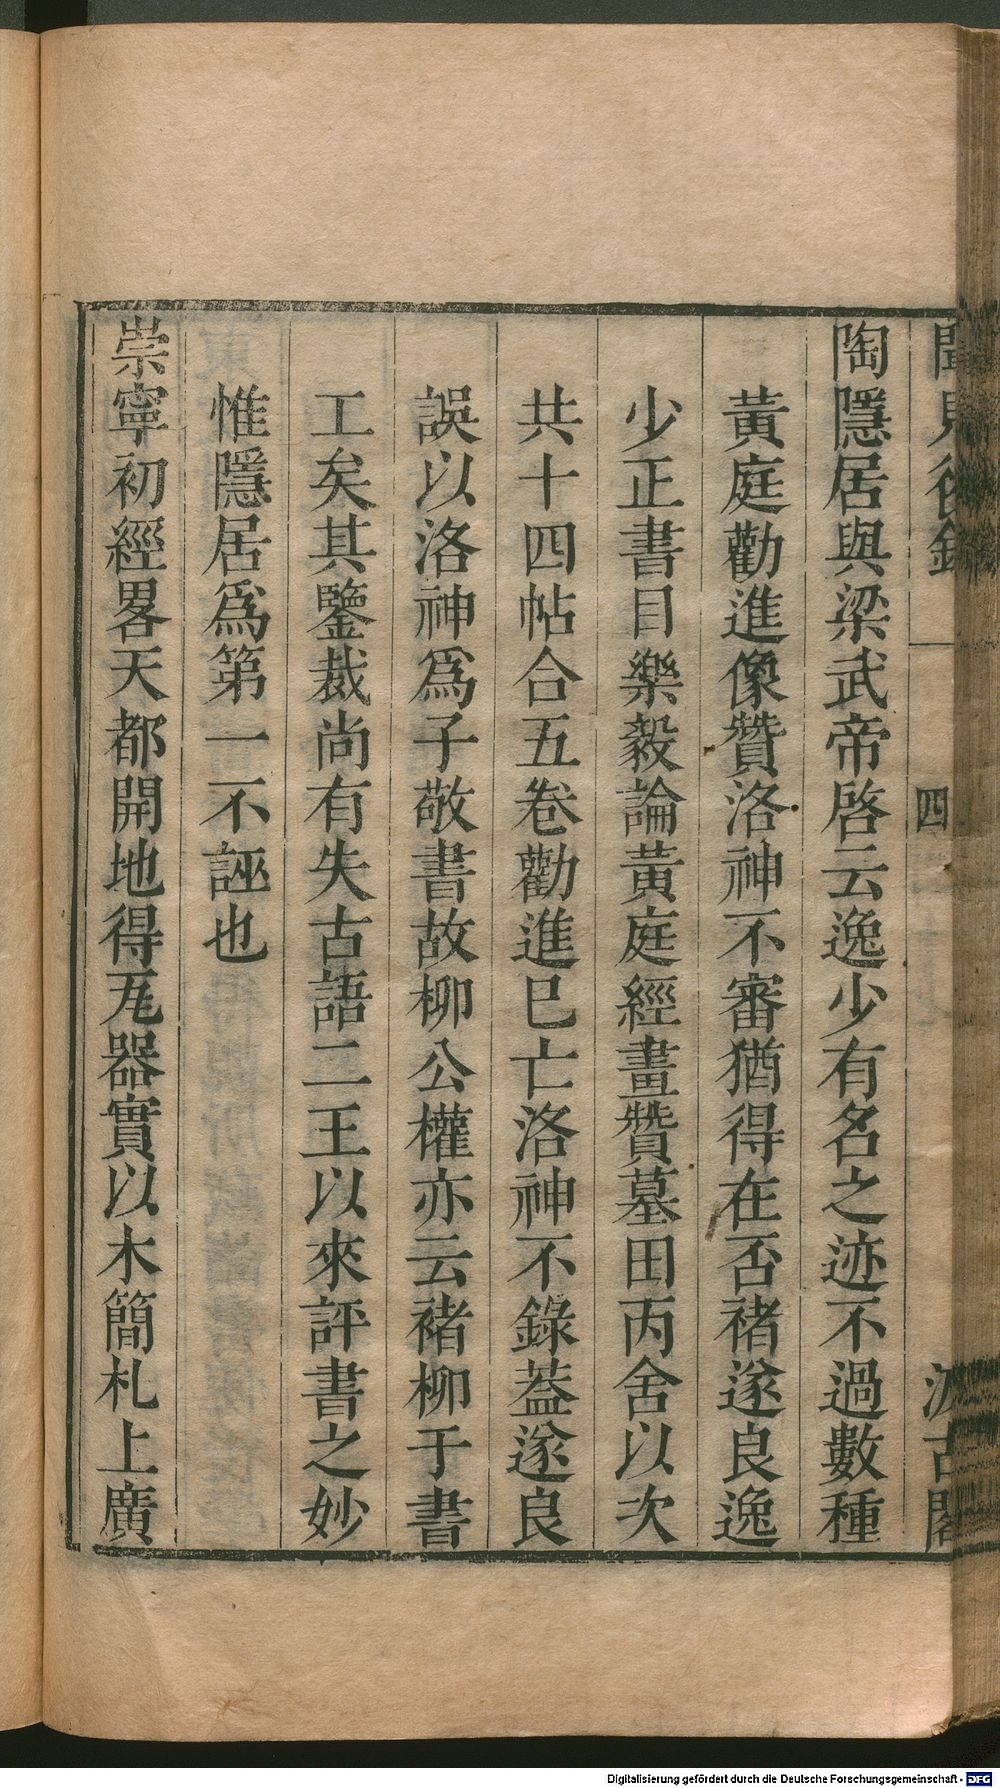 聞見後錄
四
汲古閣
陶隱居與梁武帝啓云逸少有名之迹不過數種
黃庭勸進像贊洛神不審猶得在否褚遂良逸
少正書目樂毅論黃庭經畫贊墓田丙舍以次
共十四帖合五卷勸進巳亡洛神不錄葢遂良
誤以洛神爲子敬書故柳公權亦云褚柳于書
工矣其鑒裁尚有失古語二王以來評書之妙
惟隱居爲第一不誣也
崇寧初經畧天都開地得瓦器實以木簡札上廣
Digitalisierung gefördert durch die Deutsche Forschungsgemeinschaft - DFG